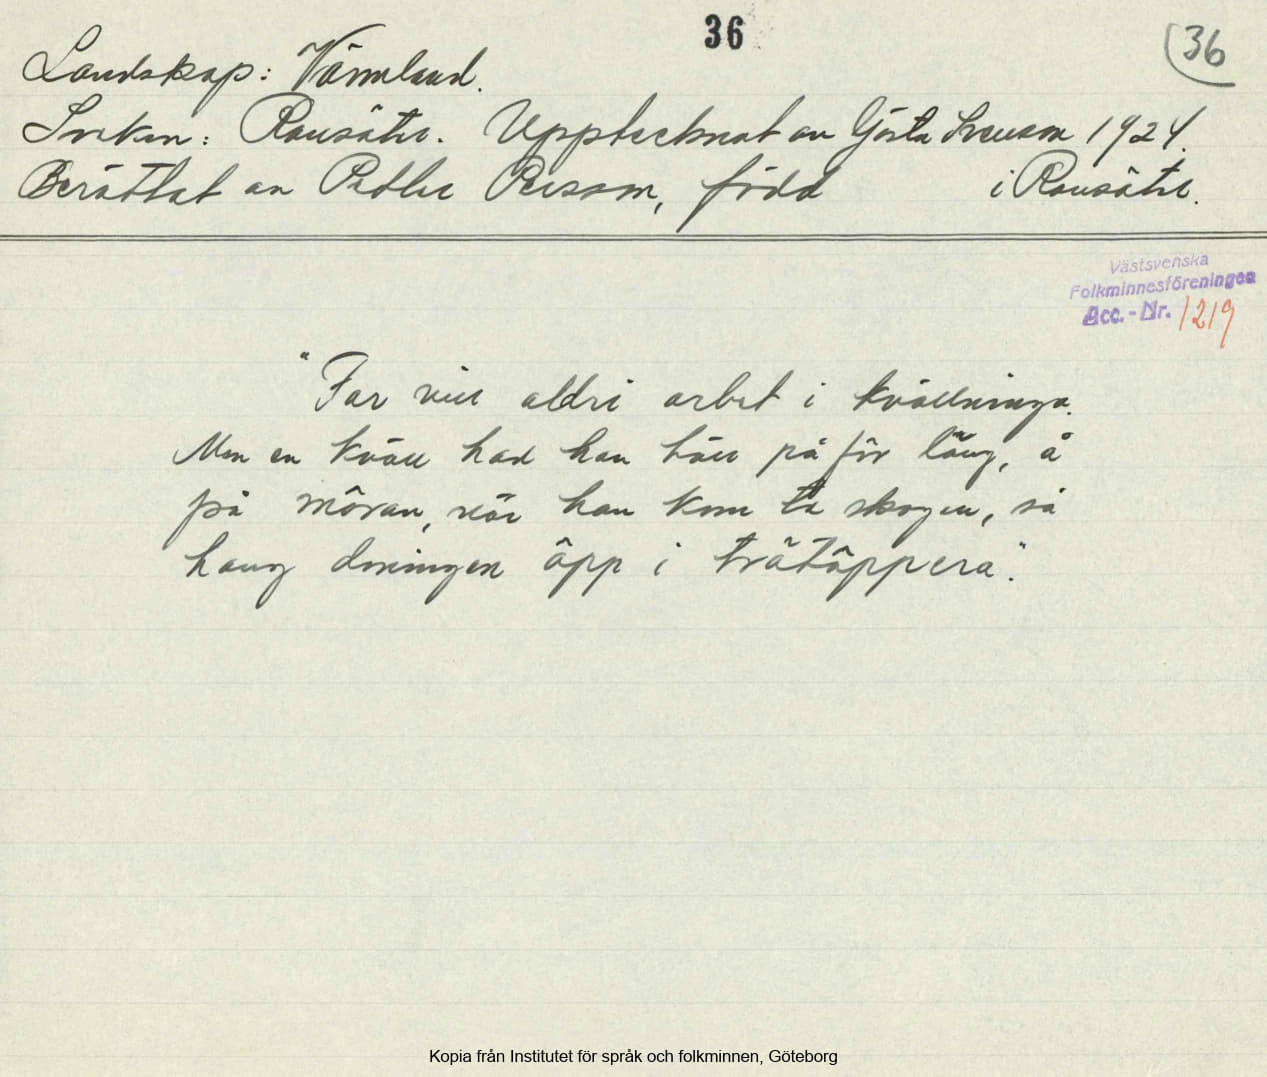 36
(36
Landskap: Värmland.
Socken: Ransäter. Upptecknat av Gösta Svensson 1924.
Berättat av Petter Persson, född i Ransäter.
Västsvenska
Folkminnesföreningen
Acc.-Nr. 1219
"Far vill aldri arbet i kvällninga.
Men en kväll had han höll på för läng, å
på môran, när han kom te skogen, så
hang dreningen ôpp i trätôppera".
Kopia från Institutet för språk och folkminnen, Göteborg